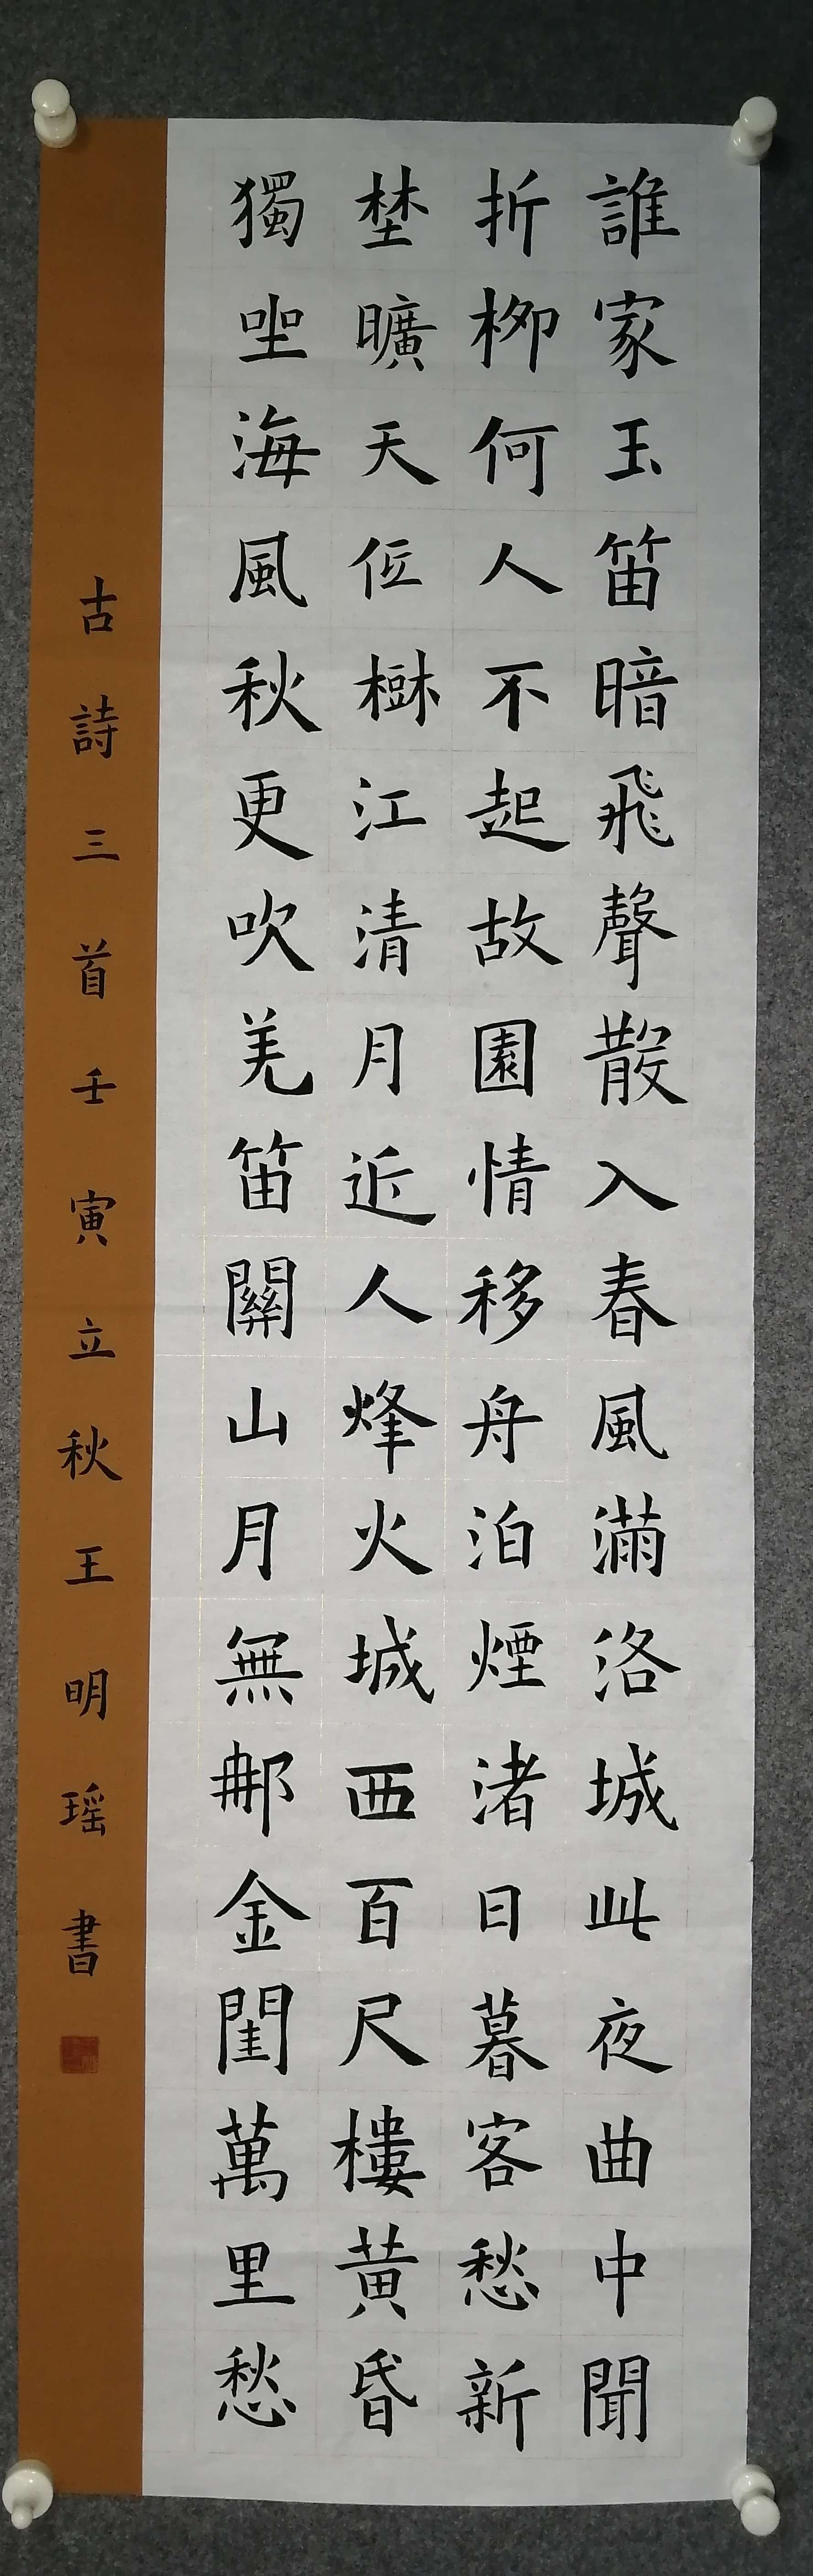 誰家玉笛暗飛聲散入春風滿洛城此夜曲中聞
折栁何人不起故園情移舟泊煙渚日暮客愁新
埜曠天低樹江清月近人烽火城西百尺樓黃昬
獨坐海風秋更吹羌笛關山月無那金閨萬里愁
古詩三首壬寅立秋王明瑶書